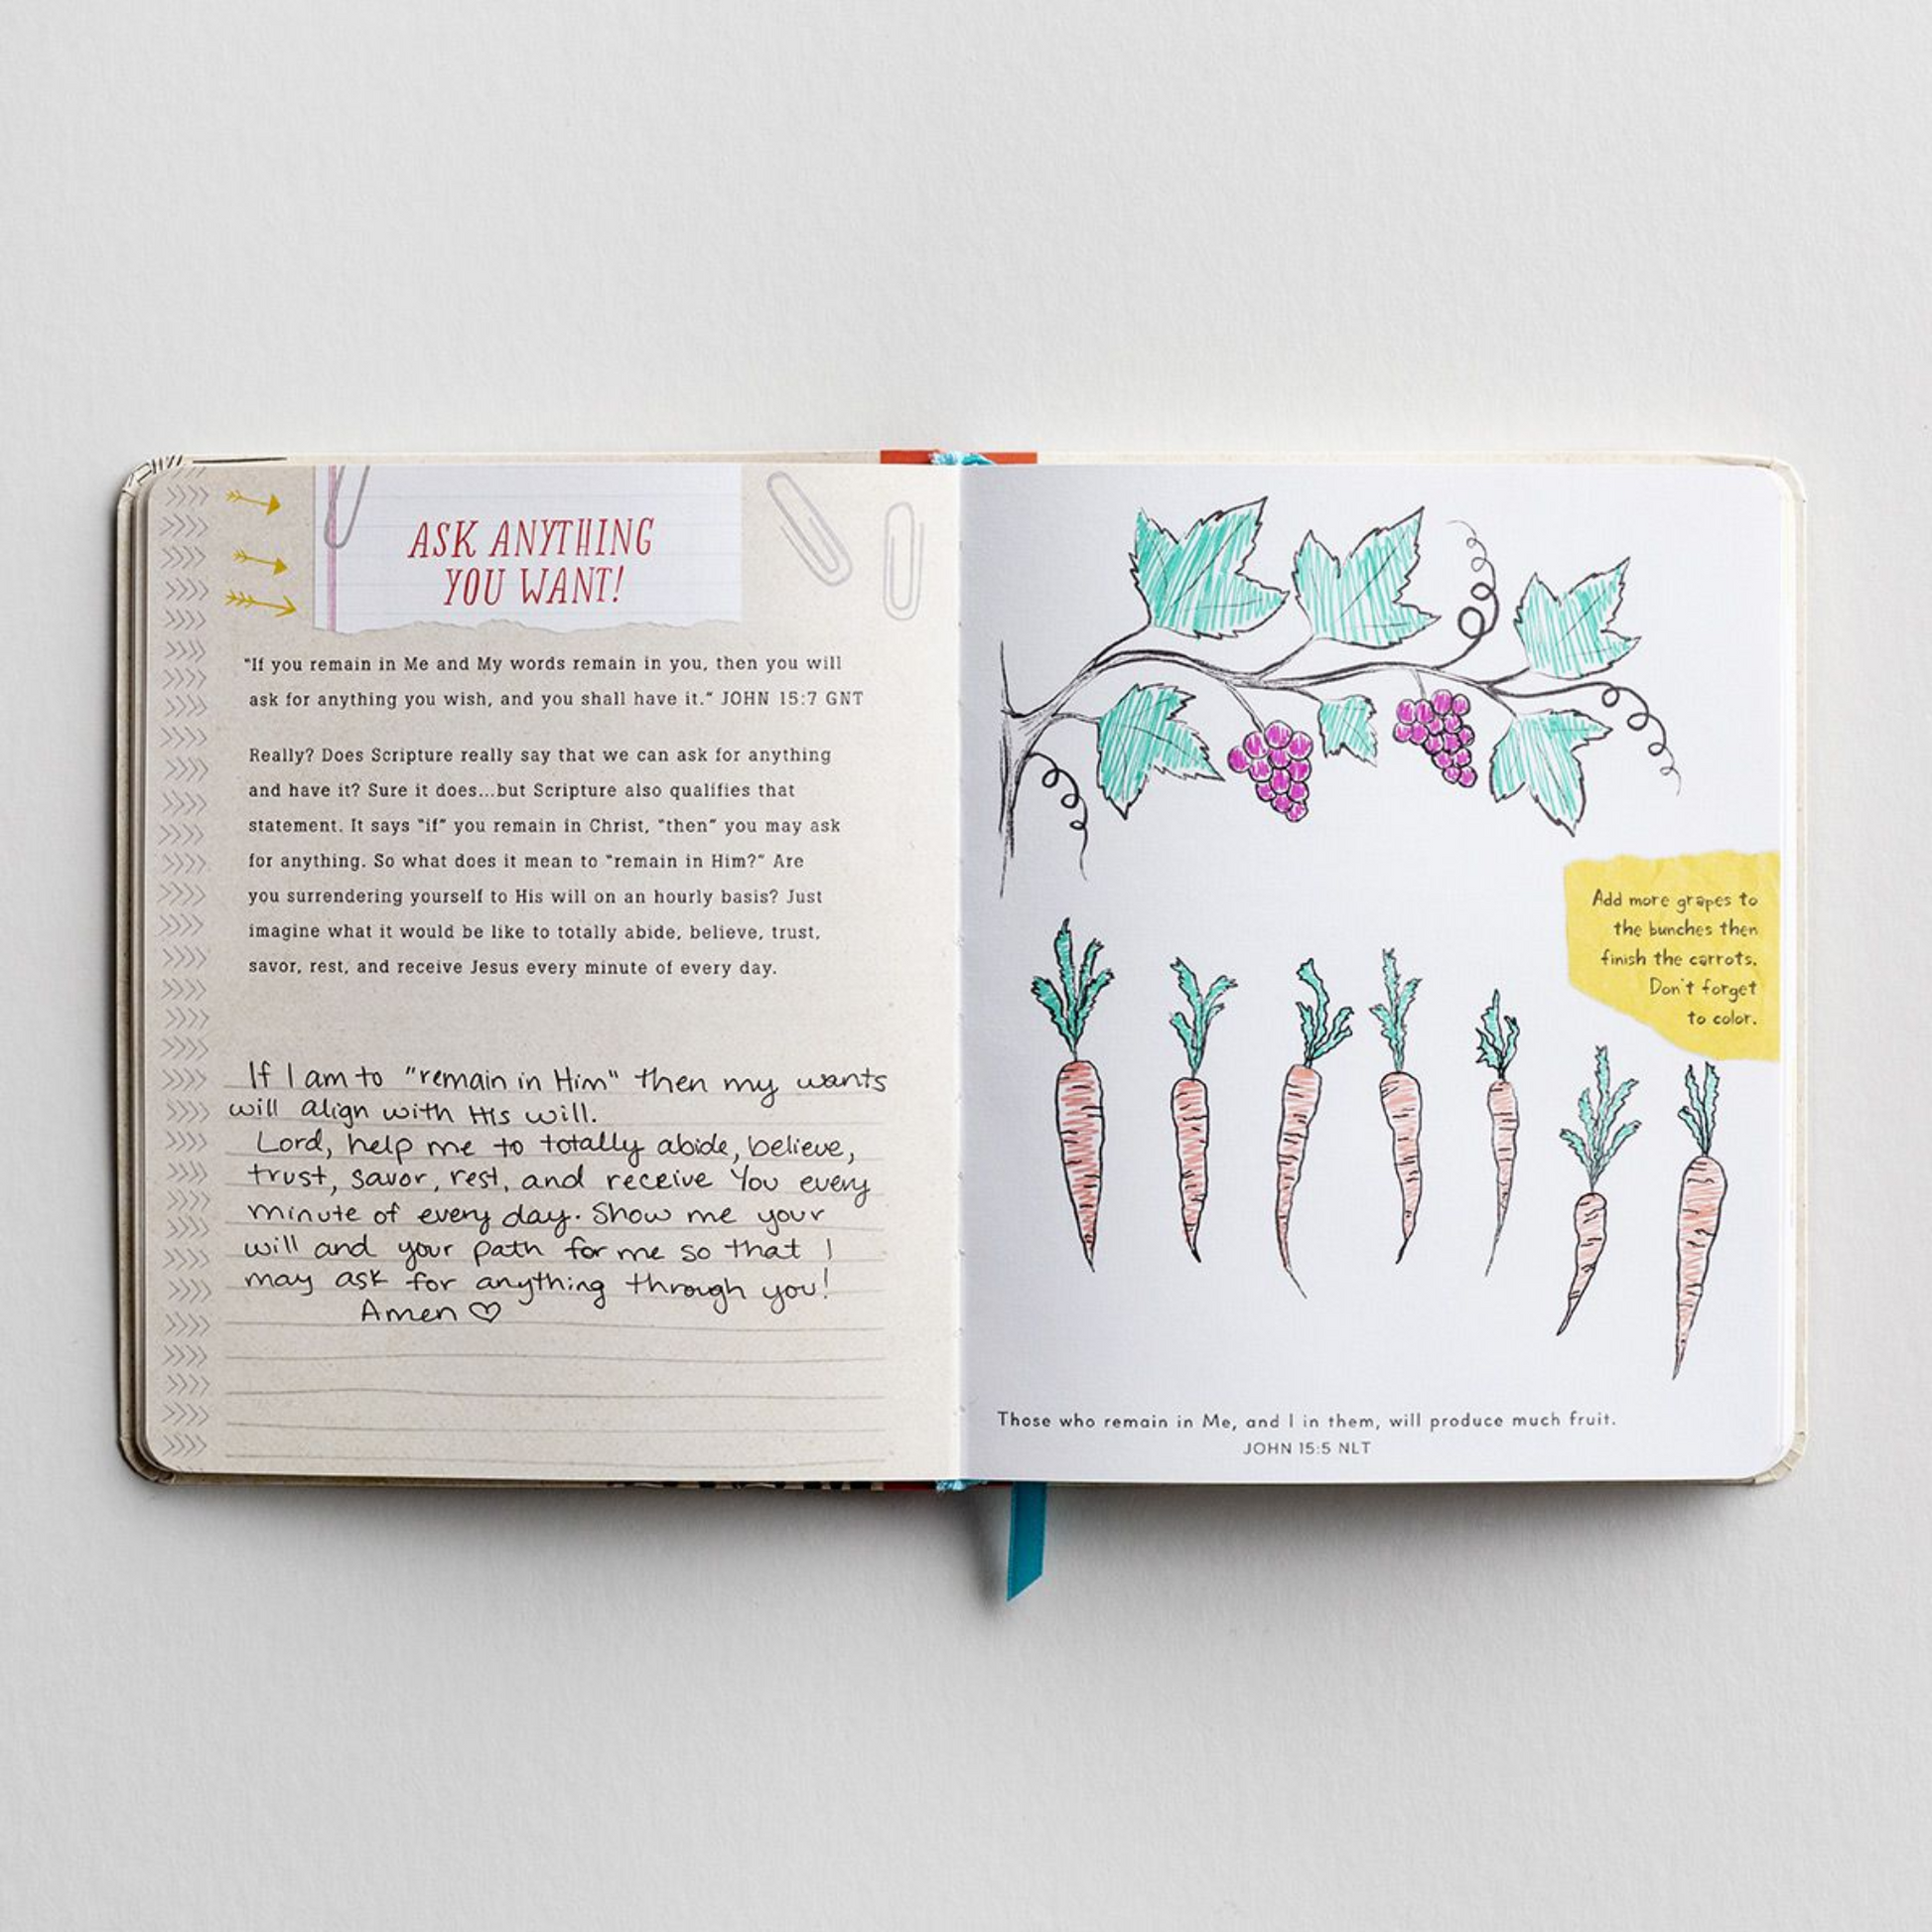 ASK ANYTHING
YOU WANT!
"If you remain in Me and My words remain in you, then you will
ask for anything you wish, and you shall have it." JOHN 15:7 GNT
Really? Does Scripture really say that we can ask for anything
and have it? Sure it does...but Scripture also qualifies that
statement. It says "if" you remain in Christ, "then" you may ask
for anything. So what does it mean to "remain in Him?" Are
you surrendering yourself to His will on an hourly basis? Just
imagine what it would be like to totally abide, believe, trust,
savor, rest, and receive Jesus every minute of every day.
If I am to "remain in Him" then my wants
will align with His will.
Lord, help me to totally abide, believe,
trust, savor, rest, and receive You every
minute of every day. Show me your
will and your path for me so that I
may ask for anything through you!
Amen ♡
Add more grapes to
the bunches then
finish the carrots.
Don't forget
to color.
Those who remain in Me, and I in them, will produce much fruit.
JOHN 15:5 NLT